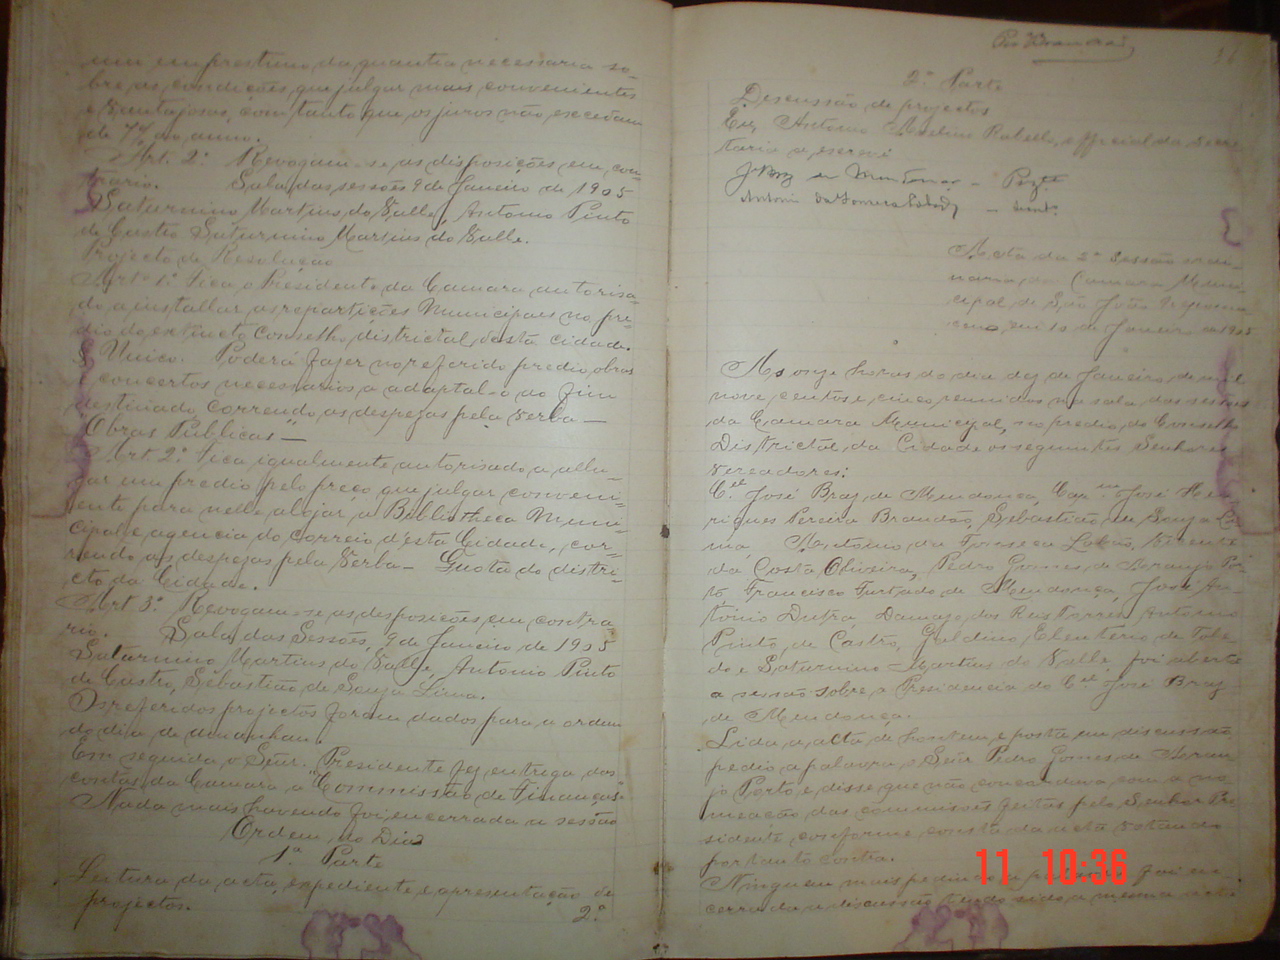 um emprestimo da quantia necessaria so-
bre as condições que julgar mais convenientes
e vantajosas, com tanto que os juros não excedam
de 7% ao anno.
Art. 2º Revogam-se as disposições em con-
trario. Sala das sessões 9 de Janeiro de 1905
Saturnino Martins do Valle, Antonio Pinto
de Castro Saturnino Martins do Valle.
Projecto de Resolução
Art. 1º Fica o Presidente da Camara autorisa-
do a installar as repartições Municipaes no pre-
dio do extincto Conselho districtal desta cidade.
§ Unico. Poderá fazer no referido predio, obras
e concertos necessarios a adaptal-o ao fim
destinado, correndo as despezas pela verba —
"Obras Publicas" —
Art. 2º Fica igualmente autorisado a allu-
gar um predio pelo preço que julgar conveni-
ente para nelle alojar a Bibliotheca Muni-
cipal e agencia do correio d'esta Cidade, cor-
rendo as despezas pela Verba — Quota do distri-
cto da Cidade.
Art 3º Revogam-se as desposições em contra
rio. Sala das Sessão, 9 de Janeiro de 1905
Saturnino Martins do Valle, Antonio Pinto
de Castro, Sebastião de Souza Lima.
Os referidos projectos foram dados para a ordem
do dia de amanhan.
Em seguida o Snr. Presidente fez entrega das
contas da Camara a "Commissão de Finanças"
Nada mais havendo foi encerrada a sessão
Ordem do Dia
1ª Parte
Leitura da acta, expediente e apresentação de
projectos.
2ª
2ª Parte
Descussão de projectos
Eu, Antonio Rabello, official da Secre
taria a escrevi
J. Braz de Mendonça — Prezte
Antonio da Fonseca Lobão —
Acta da 2ª Sessão ordi-
naria da Camara Muni-
cipal de São João Nepomu-
ceno, em 10 de Janeiro de 1905
As onze horas do dia dez de Janeiro de mil
nove centos e cinco reunidos na sala das sessões
da Camara Municipal, no predio do Conselho
Districtal da Cidade os seguintes Senhores
Vereadores:
Cel José Braz de Mendonça, Capm José Hen-
riques Pereira Brandão, Sebastião de Souza Li-
ma, Antonio da Fonseca Lobão, Vicente
da Costa Oliveira, Pedro Gomes de Araujo Por-
to, Francisco Furtado de Mendonça, José An-
tonio Dutra, Damaso dos Reis Torres, Antonio
Pinto de Castro, Galdino Eleuterio de Tole-
do e Saturnino Martins do Valle, foi aberta
a sessão sobre a Presidencia do Cel José Braz
de Mendonça.
Lida a acta de hontem e posta em discussão,
pedio a palavra o Senr Pedro Gomes de Arau-
jo Porto e disse que não concordava com a no-
meação das commissões feitas pelo Senhor Pre
sidente conforme consta da acta votando
portanto contra.
Ninguem mais pedindo a palavra foi en-
cerrada a discussão tendo sido a mesma
11 10:36